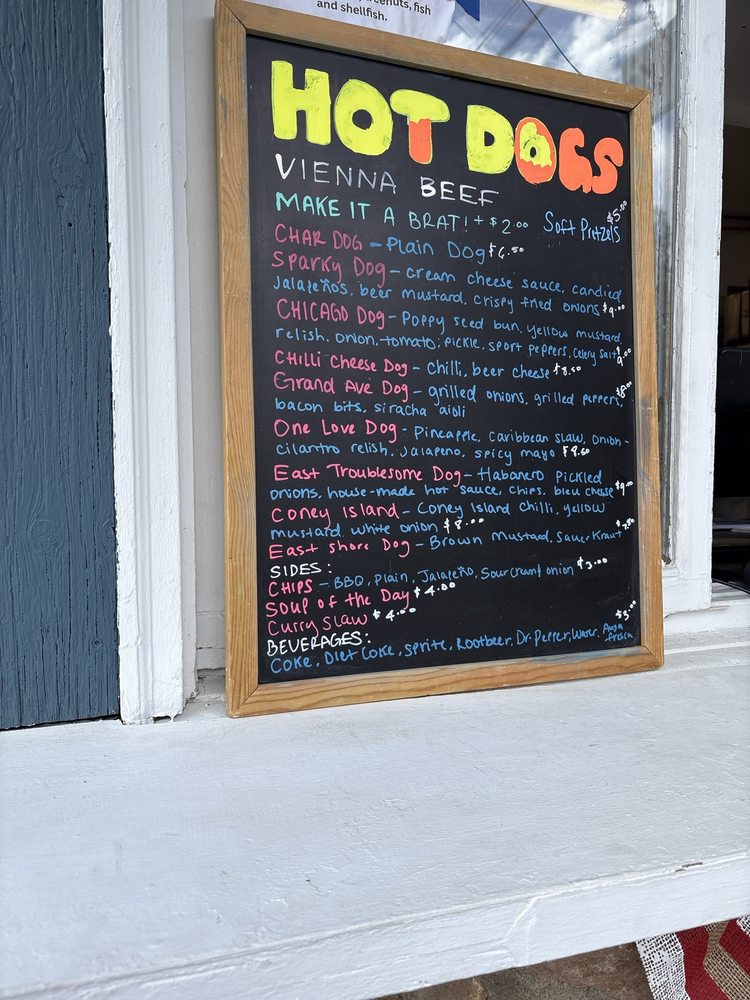 nuts, fish
and shellfish.
HOT DOGS
VIENNA BEEF
MAKE IT A BRAT! + $2.00 Soft Pretzels $5.00
CHAR DOG - Plain Dog $6.50
Sparky Dog - cream cheese sauce, candied
Jalapeños, beer mustard, crispy fried onions $9.00
CHICAGO Dog - Poppy seed bun, yellow mustard,
relish, onion, tomato, pickle, sport peppers, celery salt $9.00
CHILLI Cheese Dog - chilli, beer cheese $8.50
Grand Ave Dog - grilled onions, grilled peppers, $8.00
bacon bits, siracha aioli
One Love Dog - Pineapple, caribbean slaw, onion-
cilantro relish, jalapeno, spicy mayo $9.50
East Troublesome Dog - Habanero pickled
onions, house-made hot sauce, chips, bleu cheese $9.00
Coney Island - Coney Island Chilli, yellow
mustard, white onion $8.00
East shore Dog - Brown Mustard, Sauerkraut $7.50
SIDES:
CHIPS - BBQ, Plain, Jalapeño, Sour cream & onion $3.00
Soup of the Day $4.00
Curry Slaw $4.00
BEVERAGES: $3.00
Coke, Diet Coke, Sprite, Rootbeer, Dr. Pepper, Water, Agua fresca